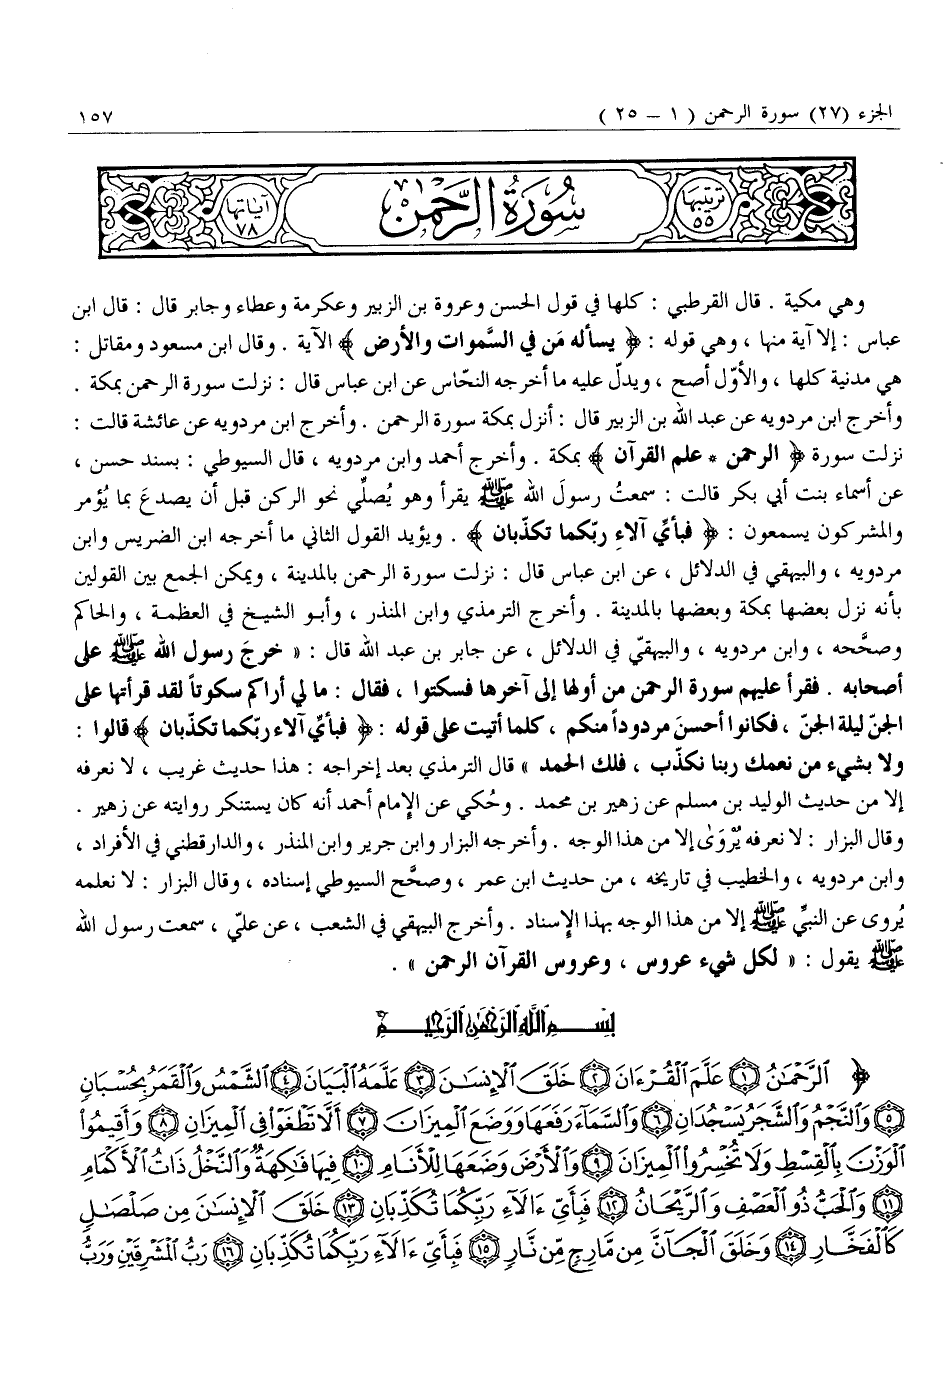 الجزء (٢٧) سورة الرحمن ( ١ – ٢٥ )
١٥٧
ترتيبها ٥٥
سُورَةُ الرَّحْمن
آياتها ٧٨
وهي مكية . قال القرطبي : كلها في قول الحسن وعروة بن الزبير وعكرمة وعطاء وجابر قال : قال ابن
عباس : إلا آية منها ، وهي قوله : ﴿ يسأله مَن في السَّموات والأرض ﴾ الآية . وقال ابن مسعود ومقاتل :
هي مدنية كلها ، والأوّل أصح ، ويدلّ عليه ما أخرجه النحّاس عن ابن عباس قال : نزلت سورة الرحمن بمكة .
وأخرج ابن مردويه عن عبد الله بن الزبير قال : أنزل بمكة سورة الرحمن . وأخرج ابن مردويه عن عائشة قالت :
نزلت سورة ﴿ الرحمن * علم القرآن ﴾ بمكة . وأخرج أحمد وابن مردويه ، قال السيوطي : بسند حسن ،
عن أسماء بنت أبي بكر قالت : سمعتُ رسولَ الله ﷺ يقرأ وهو يُصلِّي نحو الركن قبل أن يصدعَ بما يُؤمر
والمشركون يسمعون : ﴿ فبأيِّ آلاءِ ربّكما تكذّبان ﴾ . ويؤيد القول الثاني ما أخرجه ابن الضريس وابن
مردويه ، والبيهقي في الدلائل ، عن ابن عباس قال : نزلت سورة الرحمن بالمدينة ، ويمكن الجمع بين القولين
بأنه نزل بعضها بمكة وبعضها بالمدينة . وأخرج الترمذي وابن المنذر ، وأبو الشيخ في العظمة ، والحاكم
وصحَّحه ، وابن مردويه ، والبيهقيّ في الدلائل ، عن جابر بن عبد الله قال : « خرجَ رسول الله ﷺ على
أصحابه . فقرأ عليهم سورة الرحمن من أولها إلى آخرها فسكتوا ، فقال : ما لي أراكم سكوتاً لقد قرأتها على
الجنّ ليلة الجنّ ، فكانوا أحسنَ مردوداً منكم ، كلما أتيت على قوله : ﴿ فبأيِّ آلاء ربّكما تكذّبان ﴾ قالوا :
ولا بشيء من نعمك ربنا نكذّب ، فلك الحمد » قال الترمذي بعد إخراجه : هذا حديث غريب ، لا نعرفه
إلا من حديث الوليد بن مسلم عن زهير بن محمد . وحُكي عن الإمام أحمد أنه كان يستنكر روايته عن زهير .
وقال البزار : لا نعرفه يُرْوَىٰ إلا من هذا الوجه . وأخرجه البزار وابن جرير وابن المنذر ، والدارقطني في الأفراد ،
وابن مردويه ، والخطيب في تاريخه ، من حديث ابن عمر ، وصحَّح السيوطي إسناده ، وقال البزار : لا نعلمه
يُروى عن النبيِّ ﷺ إلا من هذا الوجه بهذا الإسناد . وأخرج البيهقي في الشعب ، عن عليّ ، سمعت رسول الله
ﷺ يقول : « لكل شيء عروس ، وعروس القرآن الرحمن » .
بِسْمِ ٱللَّهِ ٱلرَّحْمَٰنِ ٱلرَّحِيمِ
﴿ ٱلرَّحْمَٰنُ ١ عَلَّمَ ٱلْقُرْءَانَ ٢ خَلَقَ ٱلْإِنسَٰنَ ٣ عَلَّمَهُ ٱلْبَيَانَ ٤ ٱلشَّمْسُ وَٱلْقَمَرُ بِحُسْبَانٍ
٥ وَٱلنَّجْمُ وَٱلشَّجَرُ يَسْجُدَانِ ٦ وَٱلسَّمَآءَ رَفَعَهَا وَوَضَعَ ٱلْمِيزَانَ ٧ أَلَّا تَطْغَوْا۟ فِى ٱلْمِيزَانِ ٨ وَأَقِيمُوا۟
ٱلْوَزْنَ بِٱلْقِسْطِ وَلَا تُخْسِرُوا۟ ٱلْمِيزَانَ ٩ وَٱلْأَرْضَ وَضَعَهَا لِلْأَنَامِ ١٠ فِيهَا فَٰكِهَةٌ وَٱلنَّخْلُ ذَاتُ ٱلْأَكْمَامِ
١١ وَٱلْحَبُّ ذُو ٱلْعَصْفِ وَٱلرَّيْحَانُ ١٢ فَبِأَىِّ ءَالَآءِ رَبِّكُمَا تُكَذِّبَانِ ١٣ خَلَقَ ٱلْإِنسَٰنَ مِن صَلْصَٰلٍ
كَٱلْفَخَّارِ ١٤ وَخَلَقَ ٱلْجَآنَّ مِن مَّارِجٍ مِّن نَّارٍ ١٥ فَبِأَىِّ ءَالَآءِ رَبِّكُمَا تُكَذِّبَانِ ١٦ رَبُّ ٱلْمَشْرِقَيْنِ وَرَبُّ